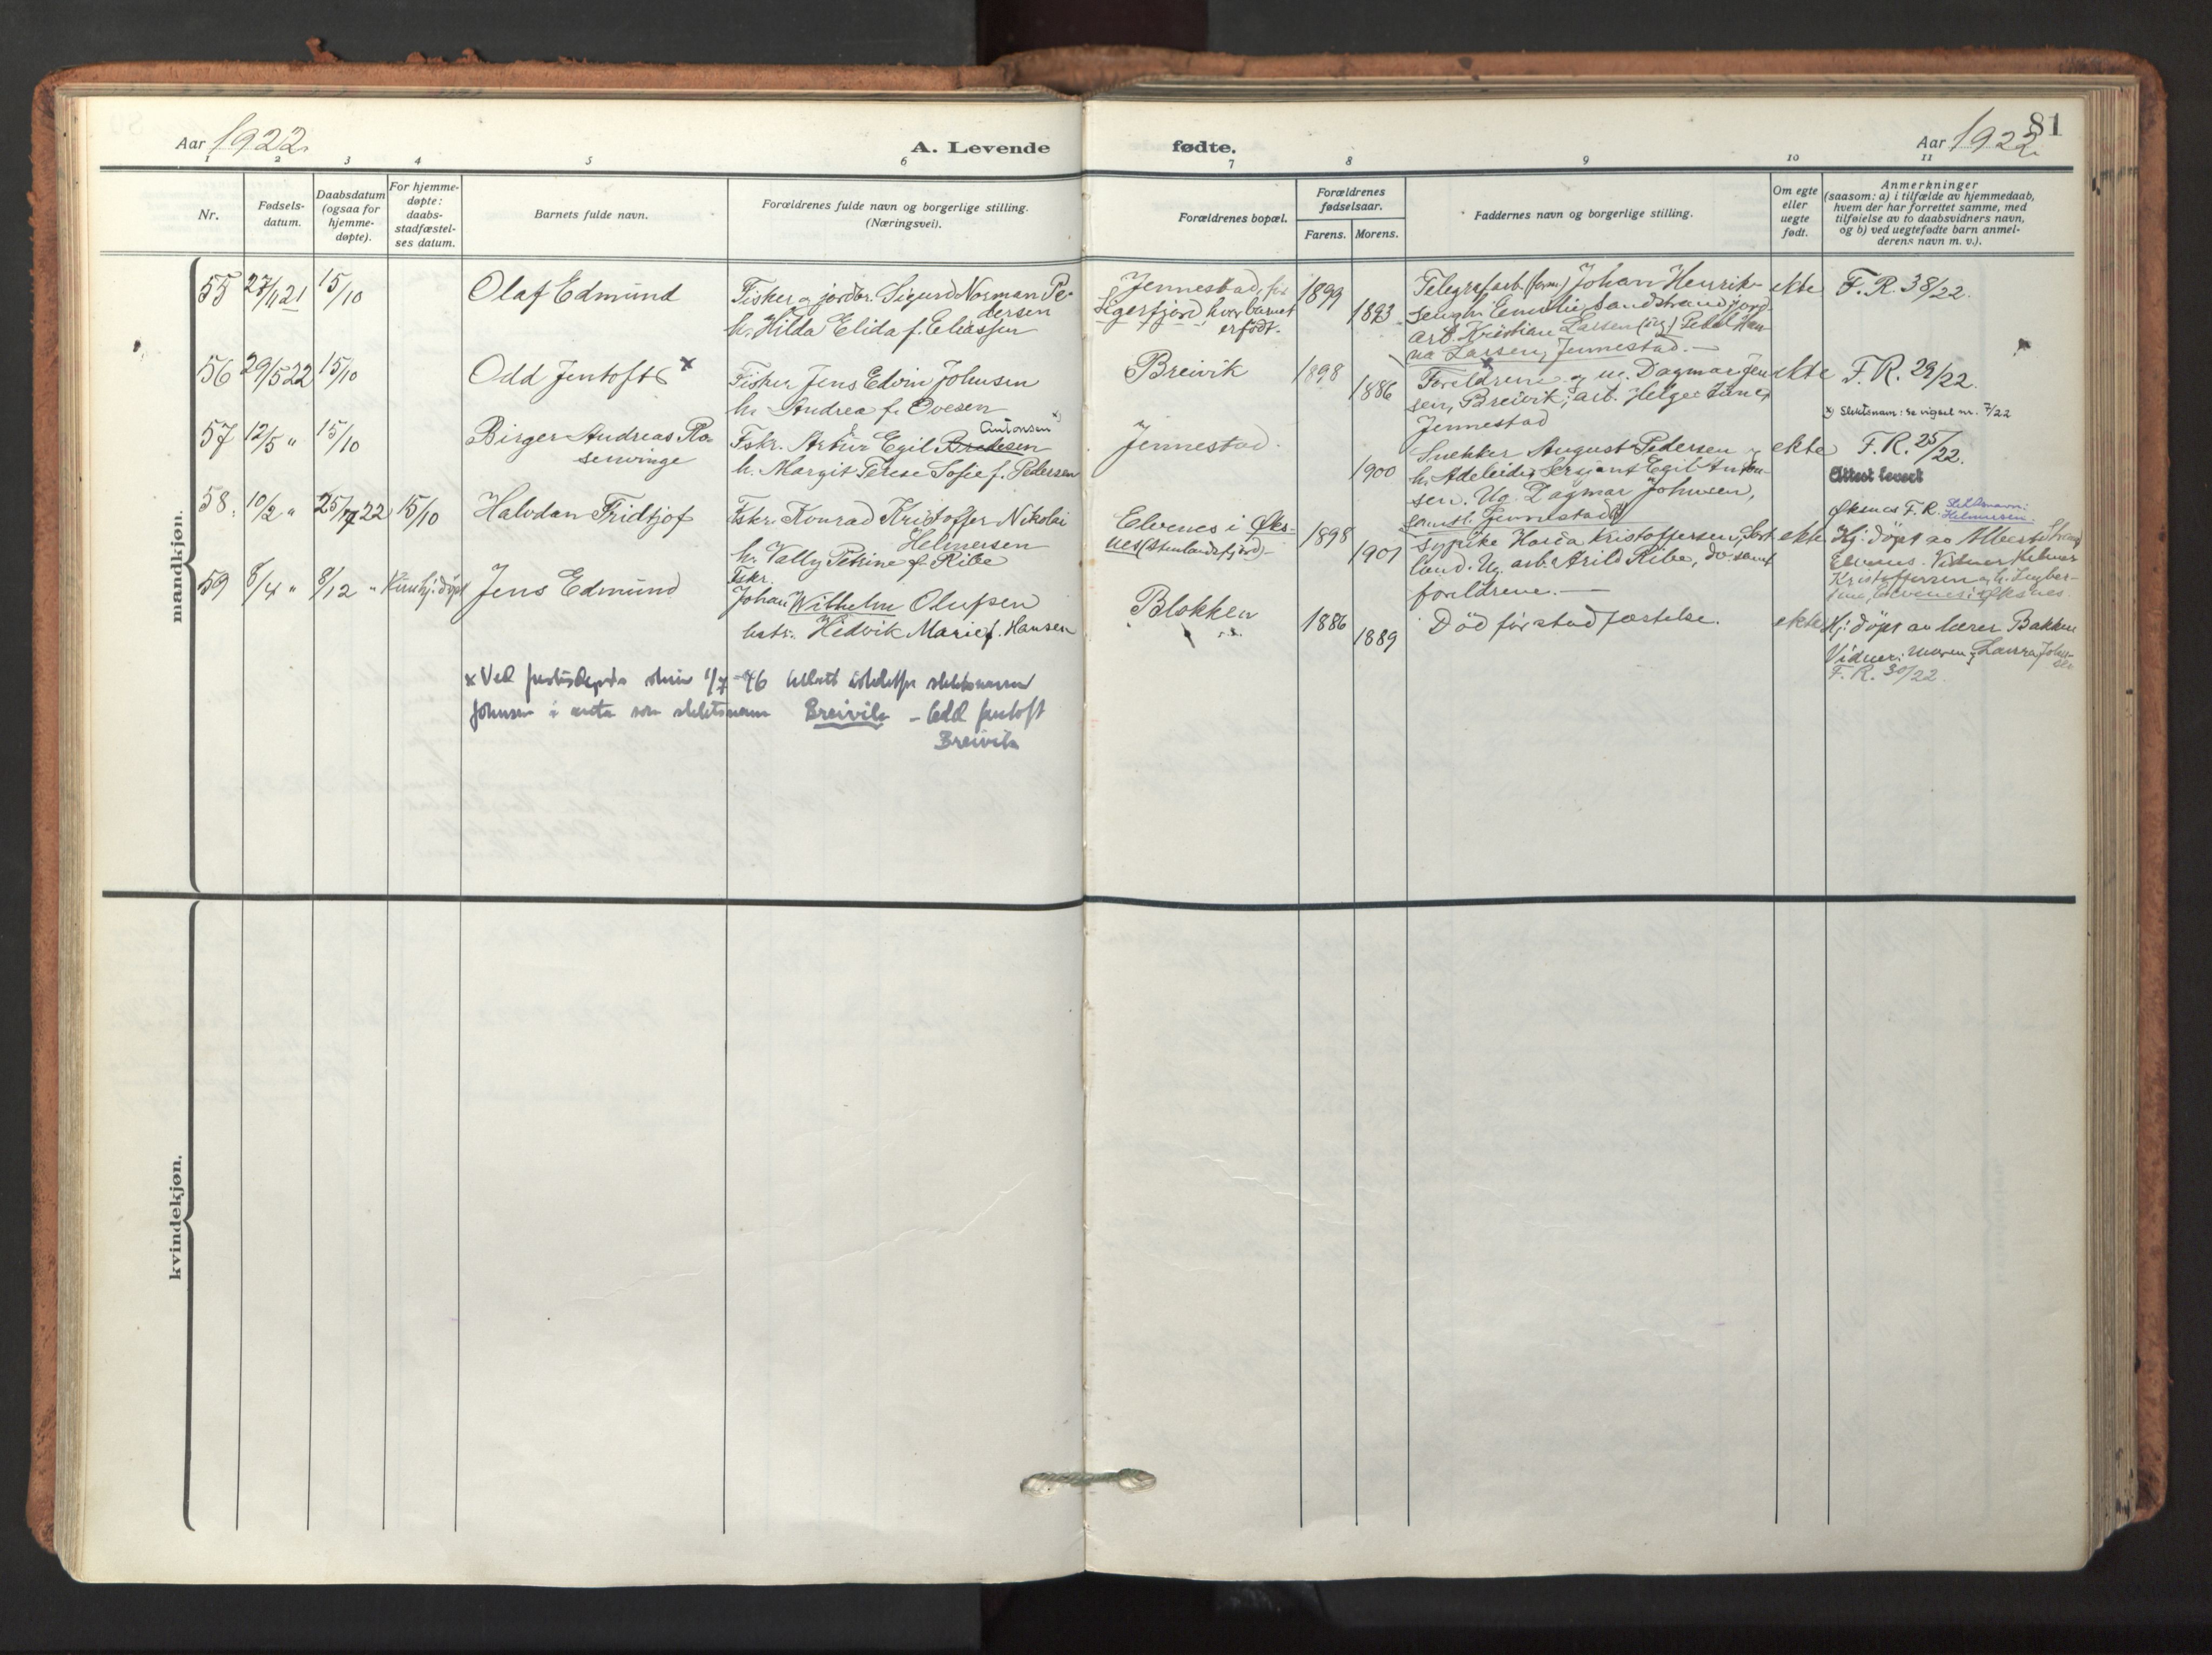 Aar 1922.
A. Levende
fødte.
Aar 1922.
81
1 2 3 4 5 6 7 8 9 10 11
Nr.
Fødsels-
datum.
Daabsdatum
(ogsaa for
hjemme-
døpte).
For hjemme-
døpte:
daabs-
stadfæstel-
ses datum.
Barnets fulde navn.
Forældrenes fulde navn og borgerlige stilling.
(Næringsvei).
Forældrenes bopæl.
Forældrenes
fødselsaar.
Farens. Morens.
Faddernes navn og borgerlige stilling.
Om egte
eller
uegte
født.
Anmerkninger
(saasom: a) i tilfælde av hjemmedaab,
hvem der har forrettet samme, med
tilføielse av to daabsvidners navn,
og b) ved uegtefødte barn anmel-
derens navn m. v.).
mandkjøn.
55 27/11 21 15/10
Olaf Edmund
Fisker og jordbr. Sigurd Norman Pe-
dersen
h. Hilda Elida f. Eliassen
Jennestad, før
Sigerfjord, hvor barnet
er født.
1899
1893
Telegrafarb. (form) Johan Henrik-
sen
Sandstrand
arb. Kristian Larsen (ug)
na Larsen, Jennestad.
ekte
F. R. 38/22.
56 29/5 22 15/10
Odd Jentoft x
Fisker Jens Edvin Johnsen
h. Andrea f. Ovesen
Breivik
1898
1886
Foreldrene og ug. Dagmar Jen
sen, Breivik; arb. Helge
Jennestad
ekte
F. R. 29/22.
x) Slektsnavn: se vigsel nr. 7/22
57 12/5 " 15/10
Birger Andreas Ro-
senvinge
Antonsen x)
Fskr. Artur Egil
h. Margit Terese Sofie f. Pedersen
Jennestad.
1900
Snekker August Pedersen og
h. Adeleide, Sersjant Egil Anton-
sen. Ug. Dagmar Johnsen,
samtl. Jennestad
ekte
F. R. 25/22.
Attest levert
58. 10/2 " 25/7 22 15/10
Halvdan Fridtjof
Fskr. Konrad Kristoffer Nikolai
Helmersen
h. Vally Petrine f. Ribe
Elvenes i Øks-
nes
1898
1901
Sypike Harda Kristoffersen, Sort
land. Ug. arb. Arild Ribe, do. samt
foreldrene.
ekte
Øksnes F. R. Slektsnavn:
Helmersen.
Hj. døpt av Albert Strand
Elvenes. Vidner Helmer
Kristoffersen og h. Ingber-
Elvenes i Øksnes.
59 8/4 " 8/12 " Kun hj. døpt
Jens Edmund
Fskr.
Johan Wilhelm Olufsen
hstr. Hedvik Marie f. Hansen
Blokken
1886
1889
Død før stadfæstelse.
ekte
Hj. døpt av lærer Bakken
Vidner: moren og Laura John-
sen
F. R. 30/22.
x Ved 1/7 -46 tillatt istedetfor slektsnavnet
Johnsen å anta som slektsnavn Breivik - Odd Jentoft
Breivik
kvindekjøn.